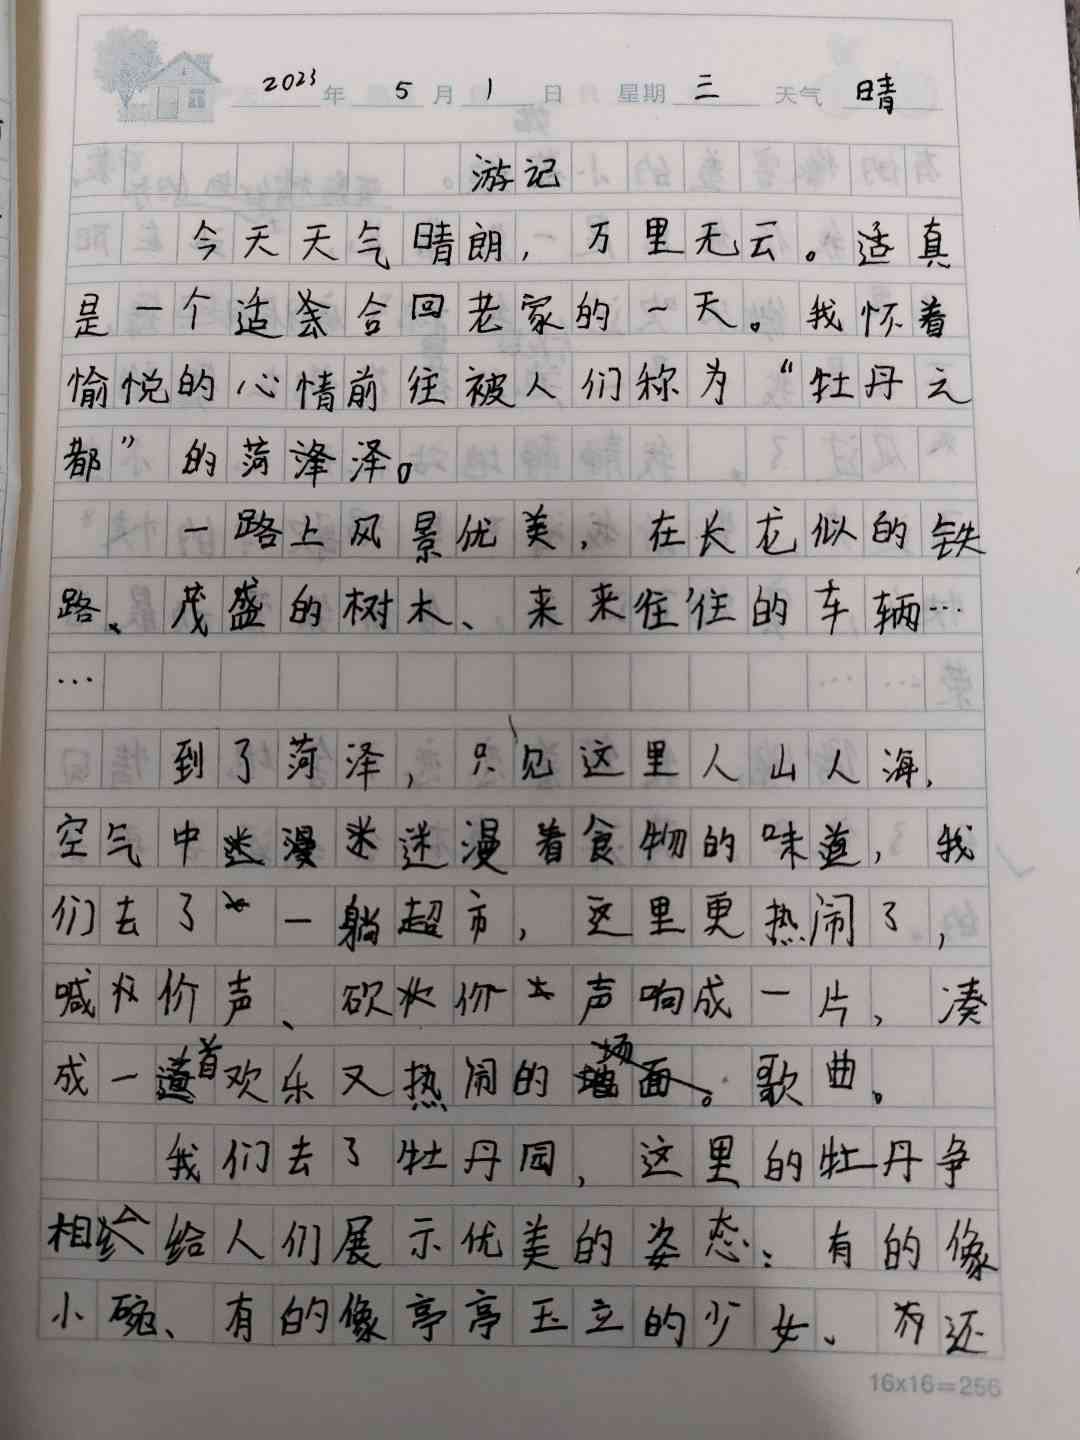 2023年5月1日 星期三 天气 晴
游记
今天天气晴朗，万里无云。适真
是一个适合回老家的一天。我怀着
愉悦的心情前往被人们称为“牡丹之
都”的菏泽泽。
一路上风景优美，在长龙似的铁
路、茂盛的树木、来来往往的车辆…
…
到了菏泽，只见这里人山人海，
空气中迷漫迷漫着食物的味道，我
们去了一躺超市，这里更热闹了，
喊价声、砍价声响成一片，凑
成一首欢乐又热闹的歌曲。
我们去了牡丹园，这里的牡丹争
相给人们展示优美的姿态：有的像
小碗、有的像亭亭玉立的少女、有还
16x16=256